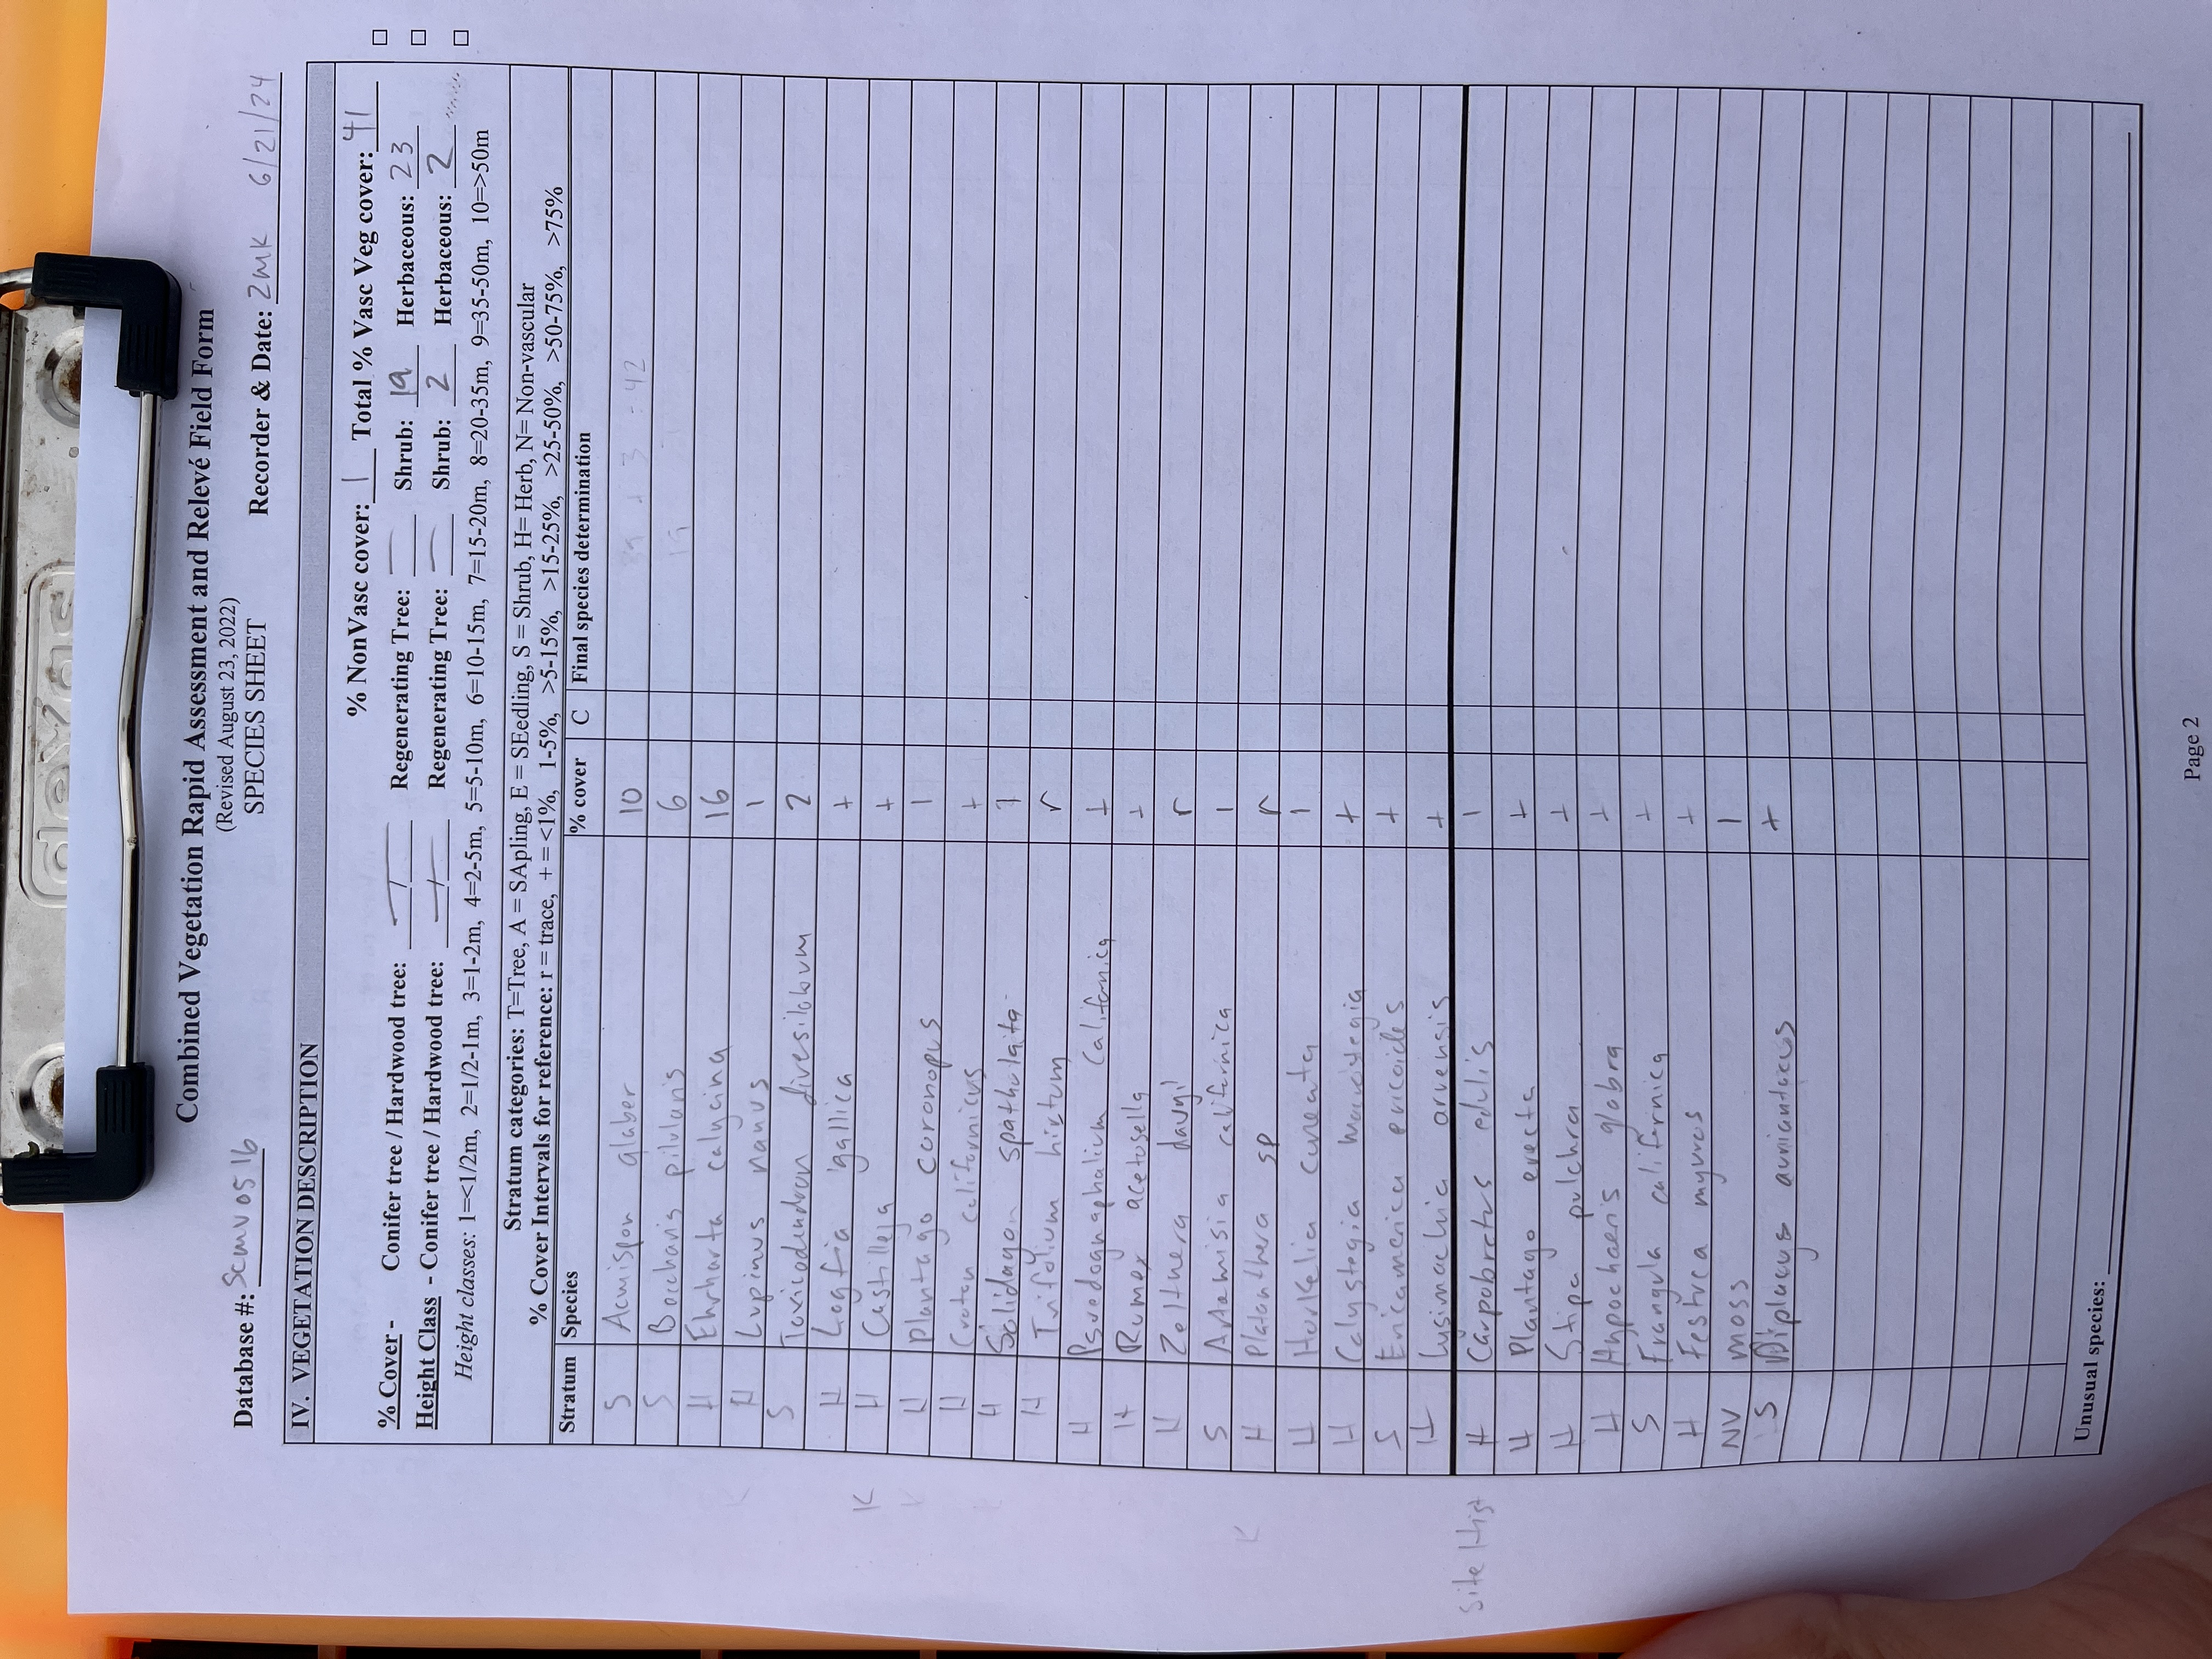 dexas
Combined Vegetation Rapid Assessment and Relevé Field Form
(Revised August 23, 2022)
SPECIES SHEET
Database #: Scmv0516 Recorder & Date: ZMK 6/21/24
IV. VEGETATION DESCRIPTION
% NonVasc cover: 1 Total % Vasc Veg cover: 41
% Cover - Conifer tree / Hardwood tree: — / — Regenerating Tree: — Shrub: 19 Herbaceous: 23
Height Class - Conifer tree / Hardwood tree: — / — Regenerating Tree: — Shrub: 2 Herbaceous: 2
Height classes: 1=<1/2m, 2=1/2-1m, 3=1-2m, 4=2-5m, 5=5-10m, 6=10-15m, 7=15-20m, 8=20-35m, 9=35-50m, 10=>50m
Stratum categories: T=Tree, A = SApling, E = SEedling, S = Shrub, H= Herb, N= Non-vascular
% Cover Intervals for reference: r = trace, + = <1%, 1-5%, >5-15%, >15-25%, >25-50%, >50-75%, >75%
Stratum Species % cover C Final species determination
S Acmispon glaber 10 39 + 3 = 42
S Baccharis pilularis 6 19
H Ehrharta calycina 16
H Lupinus nanus 1
S Toxicodendron diversilobum 2
H Logfia gallica +
K H Castilleja +
K H Plantago coronopus 1
H Croton californicus +
H Solidago spathulata
H Trifolium hirtum r
H Pseudognaphalium californica +
H Rumex acetosella +
H Zeltnera davyi r
S Artemisia californica 1
K H Platanthera sp r
H Horkelia cuneata 1
H Calystegia macrostegia +
S Ericameria ericoides +
H Lysimachia arvensis +
Site Hist H Carpobrotus edulis 1
H Plantago erecta +
H Stipa pulchra +
H Hypochaeris glabra +
S Frangula californica +
H Festuca myuros +
NV moss 1
S Diplacus aurantiacus +
Unusual species:
Page 2